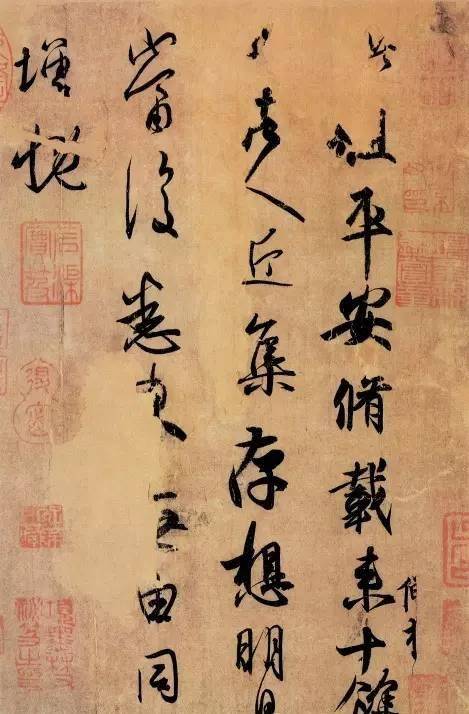 此粗平安脩載来十餘
諸人近集存想明日
當復悉来無由同
增慨